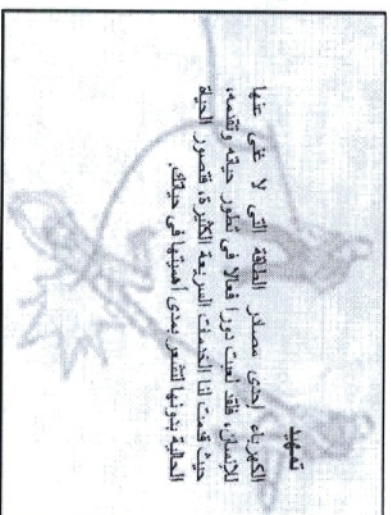 تمهيد
الكهرباء إحدى مصادر الطاقة التى لا غنى عنها
للإنسان، فلقد لعبت دورا فعالا فى تطور حياته وتقدمه،
حيث قدمت لنا الخدمات السريعة الكثيرة، فتصور الحياة
الحالية بدونها لتشعر بمدى أهميتها فى حياتك.